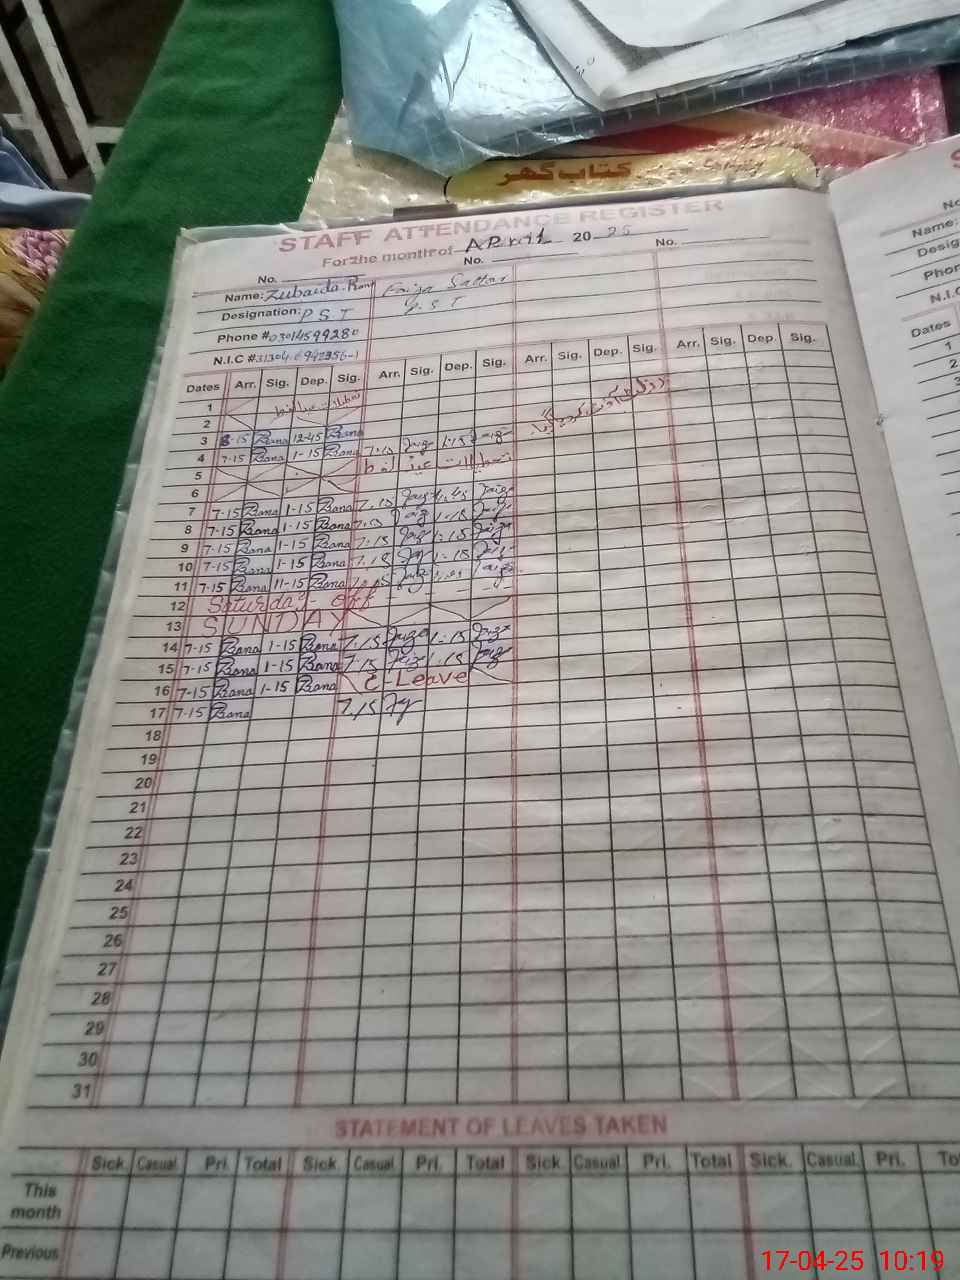 کتاب گھر
STAFF ATTENDANCE REGISTER
For the month of APriL 20 25
No. No. No.
Name: Zubaida Faiza Sattar
Designation: P S T P.S.T
Phone # 03014599280
N.I.C #
Dates Arr. Sig. Dep. Sig. Arr. Sig. Dep. Sig. Arr. Sig. Dep. Sig. Arr. Sig. Dep. Sig.
1 تعطیلات عید الفطر
2
3 8-15 Rana 12-45 Rana
4 7-15 Rana 1-15 Rana 7.15 Faiz 1.15 Faiz
5 تعطیلات عید الفطر
6
7 7-15 Rana 1-15 Rana 7.15 Faiz Faiz
8 7-15 Rana 1-15 Rana 7.15 Faiz 1.15 Faiz
9 7-15 Rana 1-15 Rana 7.15 Faiz 1.15 Faiz
10 7-15 Rana 1-15 Rana 7.15 Faiz 1.15 Faiz
11 7-15 Rana 11-15 Rana Faiz Faiz
12 Saturday off
13 SUNDAY
14 7-15 Rana 1-15 Rana 7.15 Faiz 1.15 Faiz
15 7-15 Rana 1-15 Rana 7.15 Faiz 1.15 Faiz
16 7-15 Rana 1-15 Rana C-Leave
17 7-15 Rana 7.15
18
19
20
21
22
23
24
25
26
27
28
29
30
31
STATEMENT OF LEAVES TAKEN
Sick. Casual. Pri. Total Sick. Casual. Pri. Total Sick. Casual. Pri. Total Sick. Casual. Pri.
This month
Previous
Name:
Phon
N.I.C
Dates
1
2
3
17-04-25 10:19